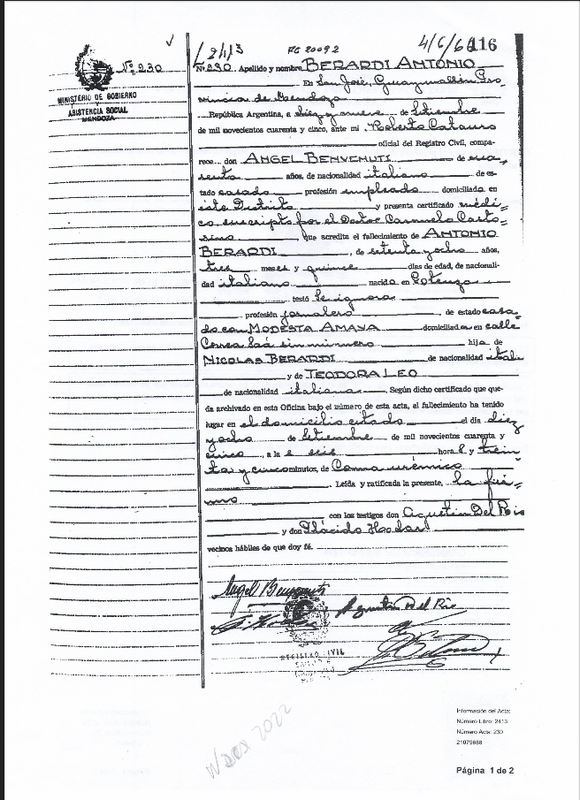 √
/2413
FG 20092
4/6/66
116
Nº 230
MINISTERIO DE GOBIERNO
Y
ASISTENCIA SOCIAL
MENDOZA
Nº 230. Apellido y nombre BERARDI ANTONIO
En San José, Guaymallén Pro=
vincia de Mendoza
República Argentina, a diez y nueve de Setiembre
de mil novecientos cuarenta y cinco, ante mí Roberto
oficial del Registro Civil, compa-
rece don ANGEL BENVENUTI de cua=
renta años, de nacionalidad italiana de es-
tado casado profesión empleado domiciliado en
este Distrito y presenta certificado médi=
co suscripto por el Doctor Carmelo
que acredita el fallecimiento de ANTONIO
BERARDI, de setenta y ocho años,
tres meses y quince días de edad, de nacionali-
dad italiana nacido en Potenza
testó Se ignora
profesión jornalero de estado casa=
do con MODESTA AMAYA domiciliado en calle
Correa Saá sin número hijo de
NICOLAS BERARDI de nacionalidad
y de TEODORA LEO
de nacionalidad italiana. Según dicho certificado que que-
da archivado en esta Oficina bajo el número de esta acta, el fallecimiento ha tenido
lugar en el domicilio citado el día diez
y ocho de Setiembre de mil novecientos cuarenta y
cinco, a la s seis hora s y trein=
ta y cinco minutos, de Coma urémico
Leída y ratificada la presente, la fir=
mo
con los testigos don Agustin Del
y don Plácido
vecinos hábiles de que doy fé.
Angel Benvenuti
Agustin Del
REGISTRO CIVIL
2022
Información del Acta:
Número Libro: 2413
Número Acta: 230
21079888
Página 1 de 2